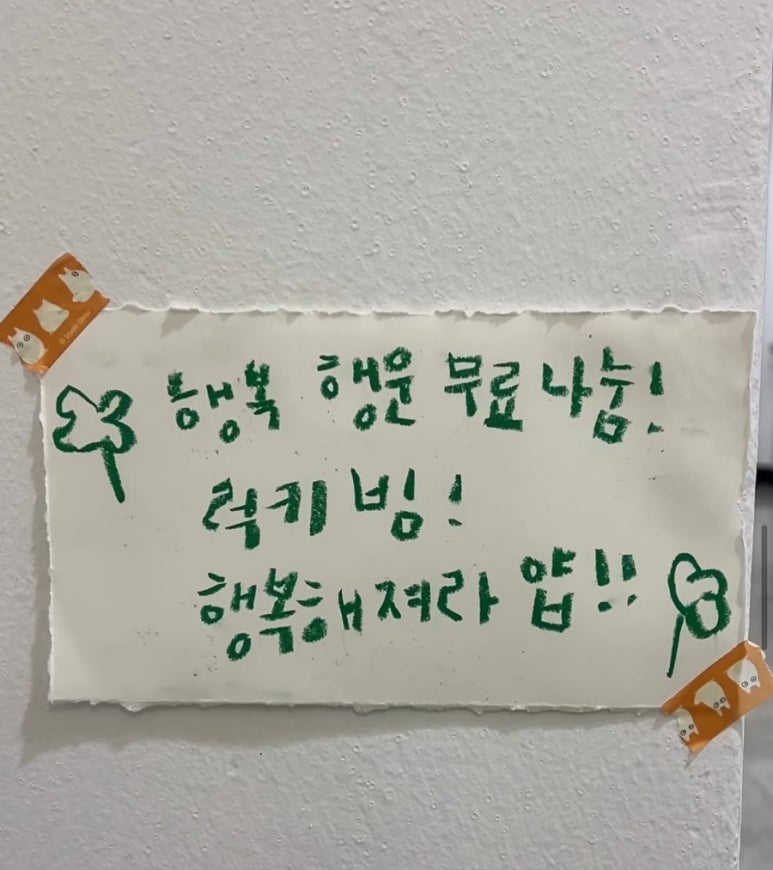 © Studio Ghibli
행복 행운 무료 나눔!
럭키 빔!
행복해져라 얍!!